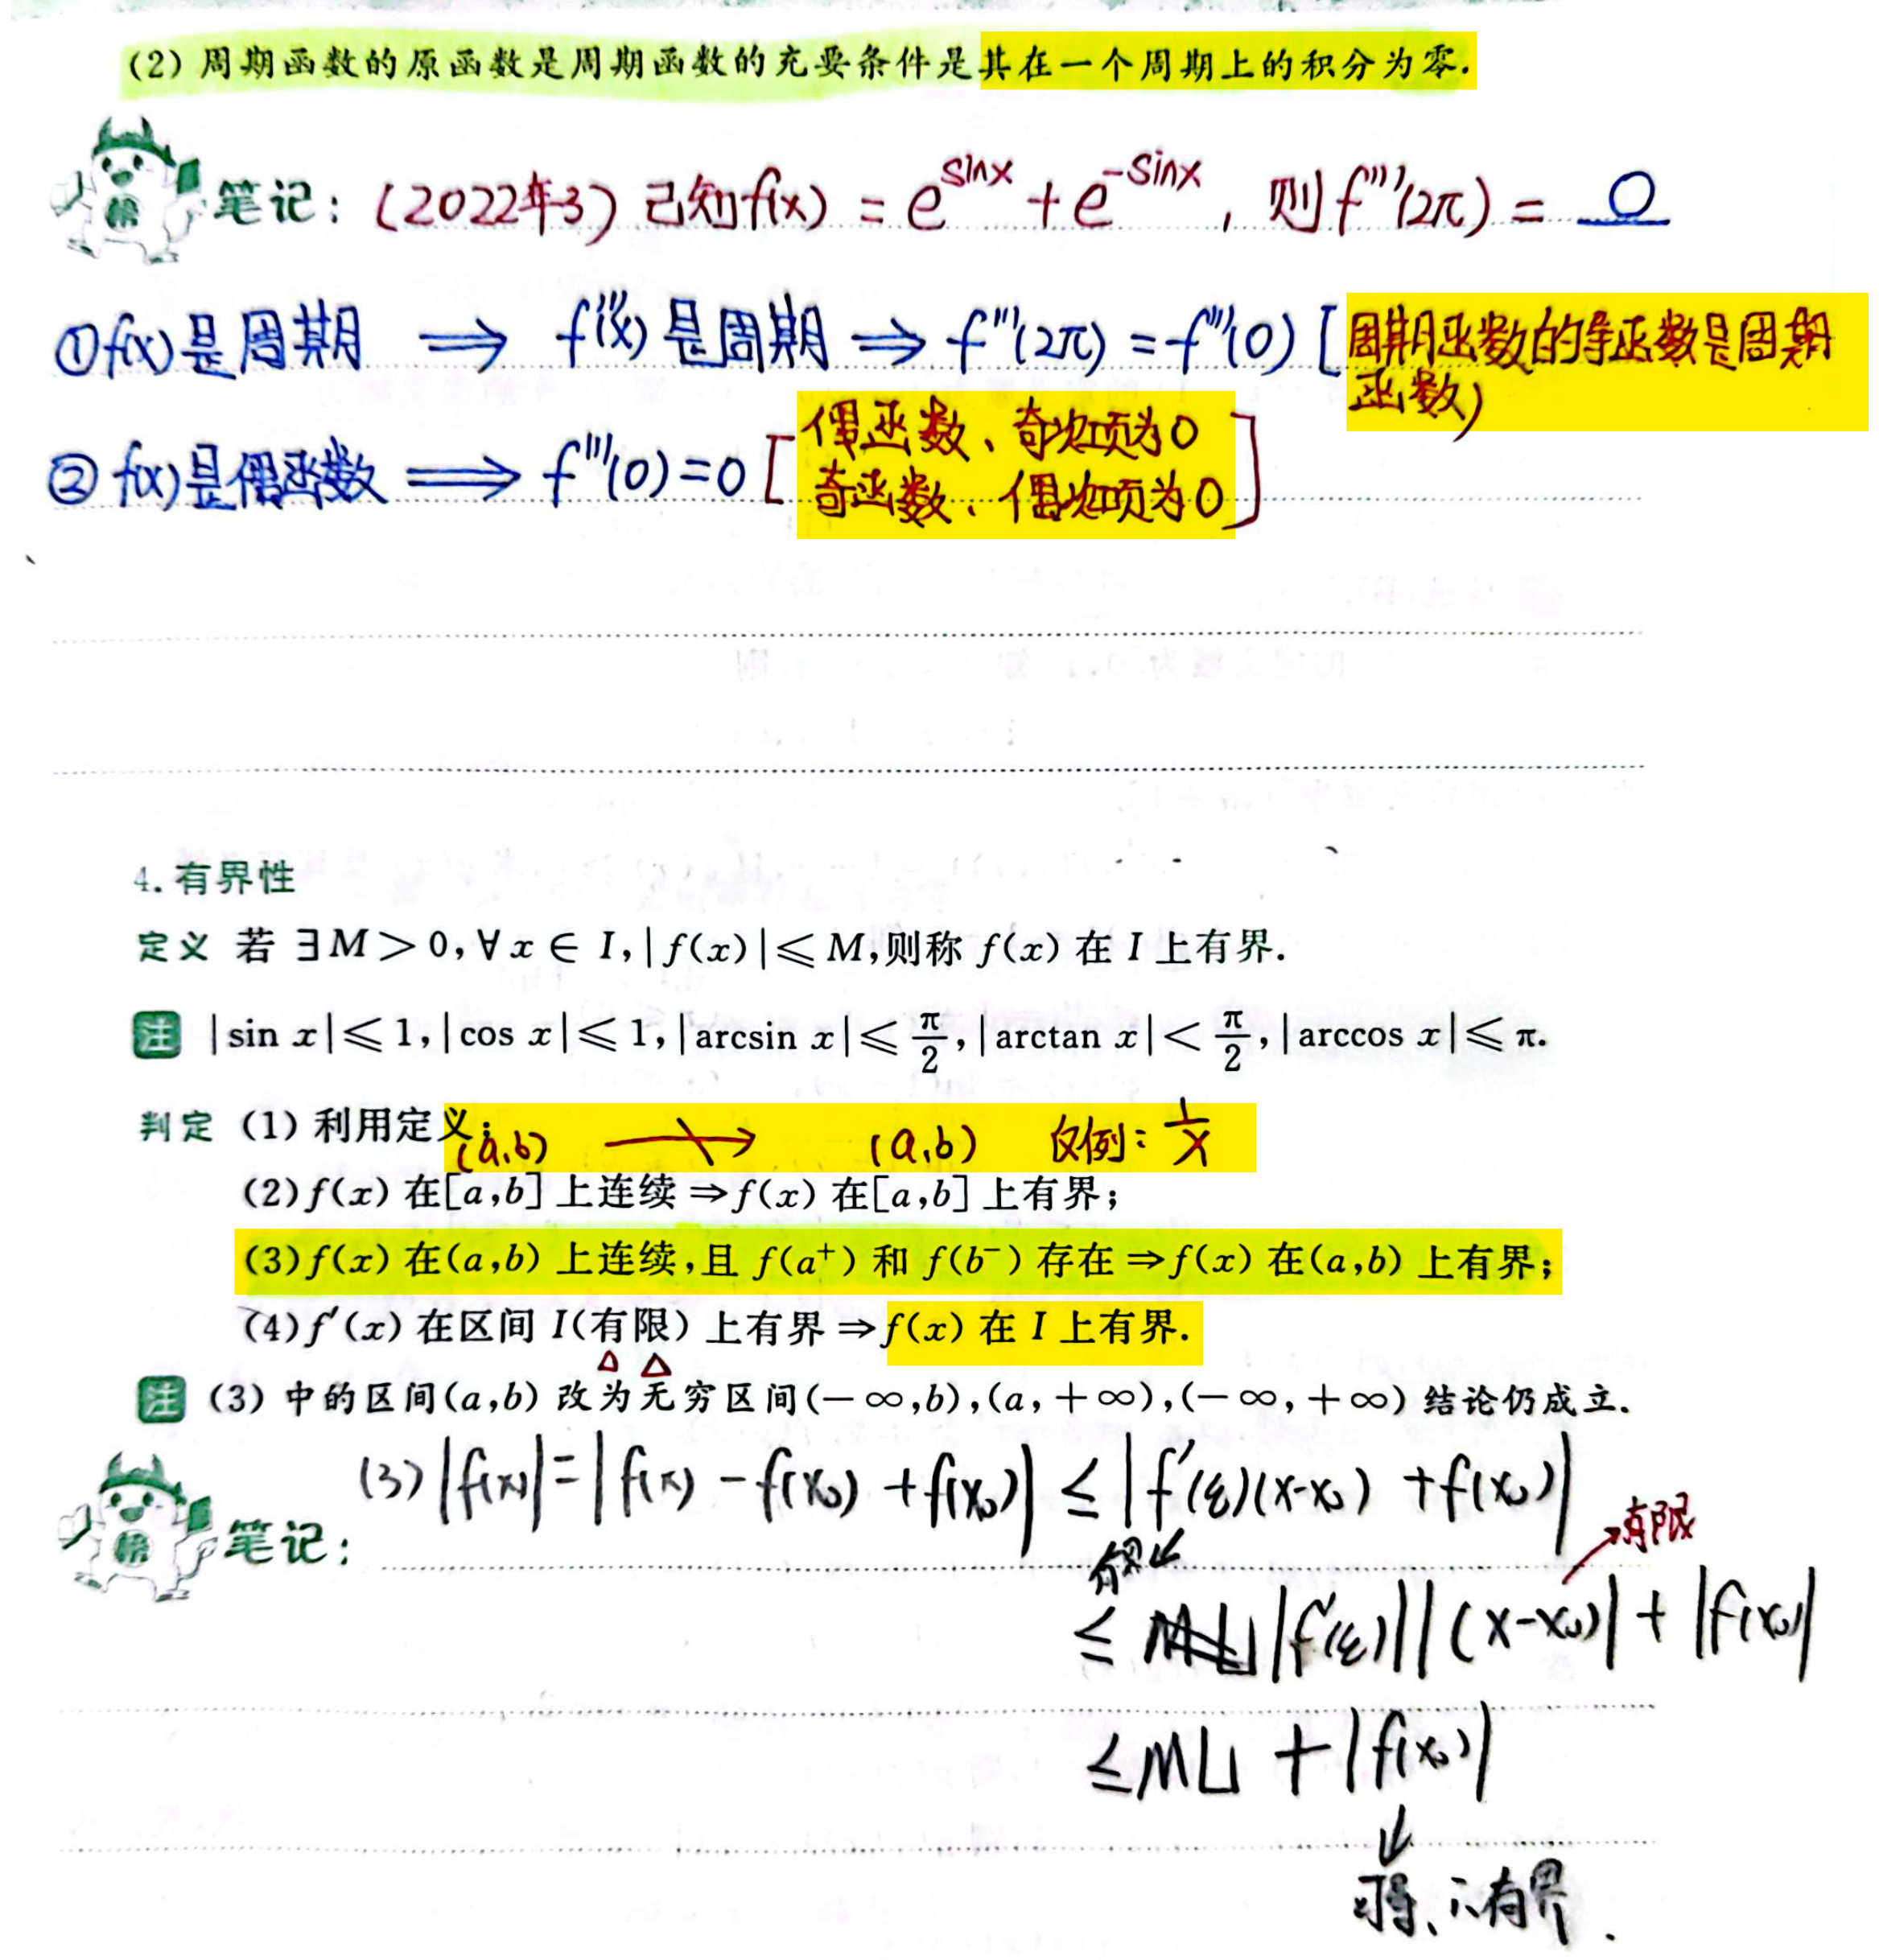 (2) 周期函数的原函数是周期函数的充要条件是其在一个周期上的积分为零.
笔记: (2022年3) 已知f(x) = e^{sinx} + e^{-sinx}, 则f'''(2π) = 0
①f(x)是周期 ⟹ f'''(x)是周期 ⟹ f'''(2π) = f'''(0) [周期函数的导函数是周期
函数)
②f(x)是偶函数 ⟹ f'''(0)=0 [偶函数、奇次项为0
奇函数、偶次项为0]
4. 有界性
定义 若 ∃M > 0, ∀x ∈ I, |f(x)| ⩽ M,则称 f(x) 在 I 上有界.
注 |sin x| ⩽ 1, |cos x| ⩽ 1, |arcsin x| ⩽ π/2, |arctan x| < π/2, |arccos x| ⩽ π.
判定 (1) 利用定义;
(a,b) ↛ (a,b) 反例: 1/x
(2) f(x) 在[a,b] 上连续 ⇒ f(x) 在[a,b] 上有界;
(3) f(x) 在(a,b) 上连续,且 f(a⁺) 和 f(b⁻) 存在 ⇒ f(x) 在(a,b) 上有界;
(4) f′(x) 在区间 I(有限) 上有界 ⇒ f(x) 在 I 上有界.
△ △
注 (3) 中的区间(a,b) 改为无穷区间(−∞,b),(a,+∞),(−∞,+∞) 结论仍成立.
笔记: (3) |f(x)| = |f(x) − f(x₀) + f(x₀)| ≤ |f′(ξ)(x−x₀) + f(x₀)|
有界 ↙ ↗有限
≤ |f′(ξ)||(x−x₀)| + |f(x₀)|
≤ M⊔ + |f(x₀)|
↓
可导、∴有界.